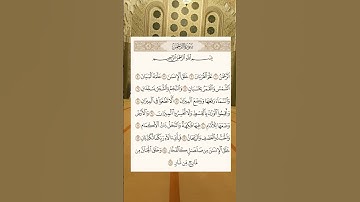 سُورَةُ الرَّحْمَٰن
بِسْمِ اللَّهِ الرَّحْمَٰنِ الرَّحِيمِ
الرَّحْمَٰنُ ۝ عَلَّمَ الْقُرْءَانَ ۝ خَلَقَ الْإِنسَٰنَ ۝ عَلَّمَهُ الْبَيَانَ ۝
الشَّمْسُ وَالْقَمَرُ بِحُسْبَانٍ ۝ وَالنَّجْمُ وَالشَّجَرُ يَسْجُدَانِ ۝
وَالسَّمَاءَ رَفَعَهَا وَوَضَعَ الْمِيزَانَ ۝ أَلَّا تَطْغَوْا فِي الْمِيزَانِ ۝
وَأَقِيمُوا الْوَزْنَ بِالْقِسْطِ وَلَا تُخْسِرُوا الْمِيزَانَ ۝ وَالْأَرْضَ
وَضَعَهَا لِلْأَنَامِ ۝ فِيهَا فَٰكِهَةٌ وَالنَّخْلُ ذَاتُ الْأَكْمَامِ ۝
وَالْحَبُّ ذُو الْعَصْفِ وَالرَّيْحَانُ ۝ فَبِأَيِّ ءَالَاءِ رَبِّكُمَا تُكَذِّبَانِ ۝
خَلَقَ الْإِنسَٰنَ مِن صَلْصَٰلٍ كَالْفَخَّارِ ۝ وَخَلَقَ الْجَانَّ مِن
مَّارِجٍ مِّن نَّارٍ ۝